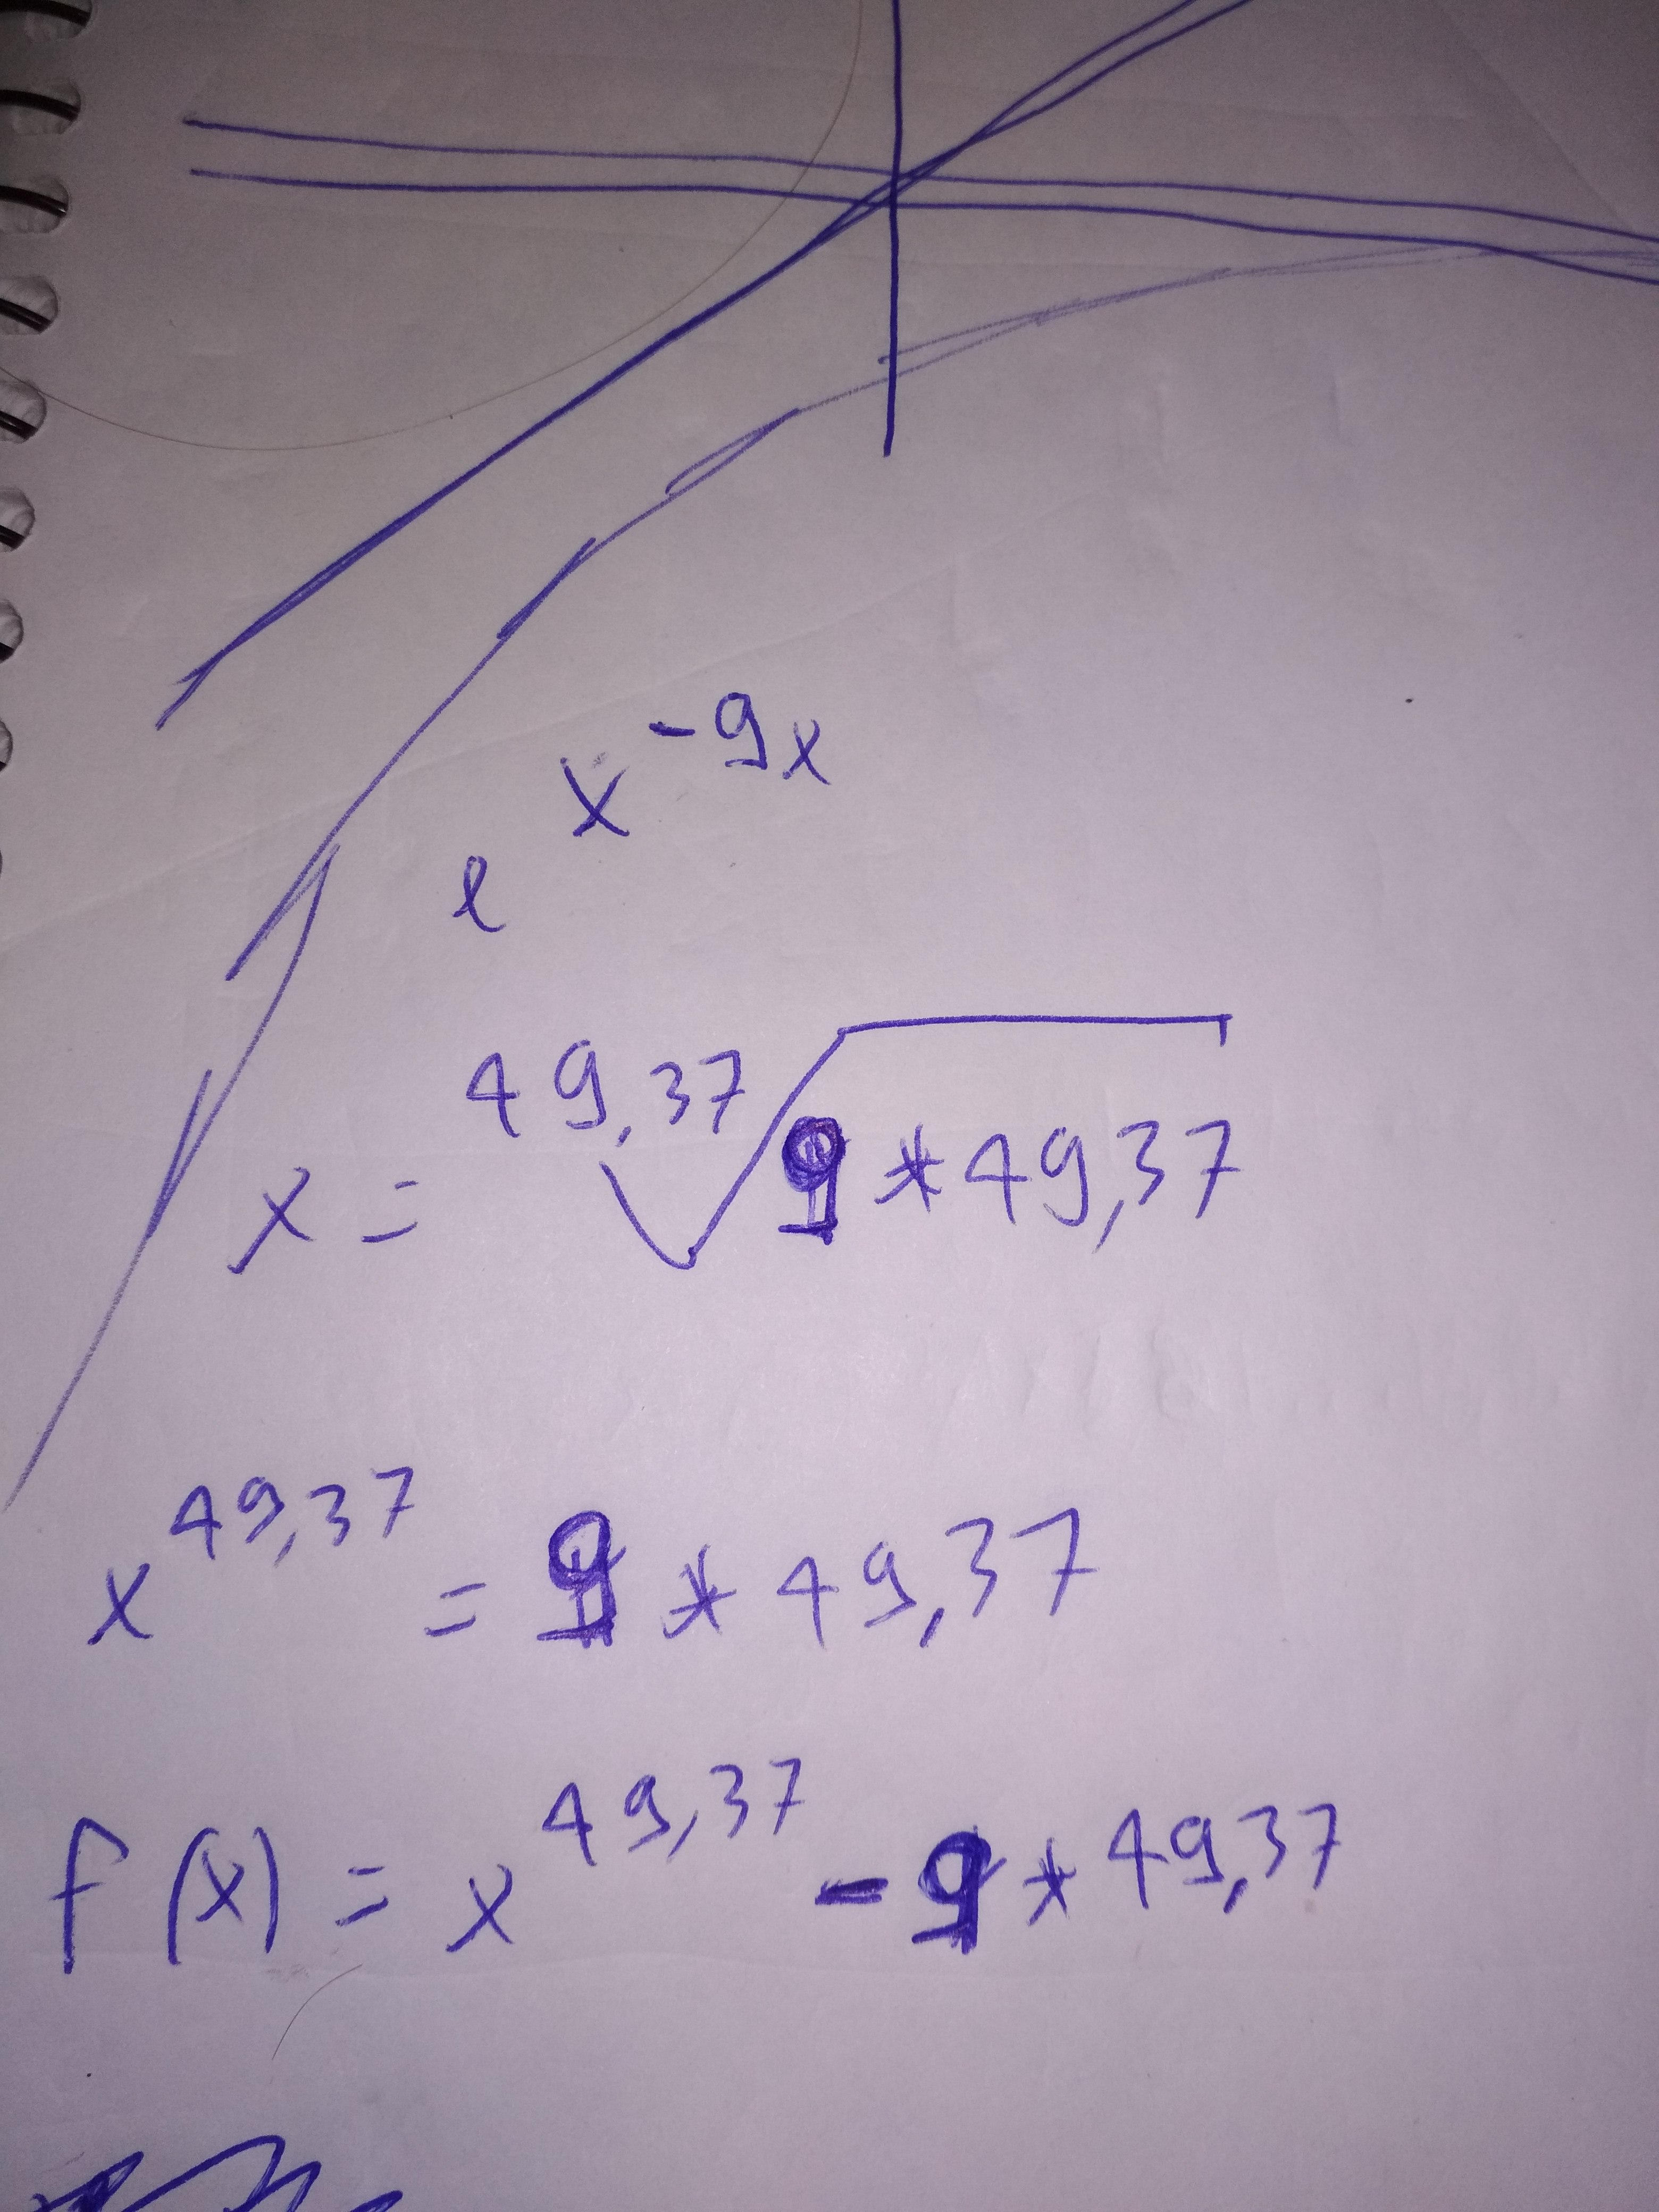 e^x^-9x
x = ^49,37√9 * 49,37
x^49,37 = 9 * 49,37
f(x) = x^49,37 - 9 * 49,37